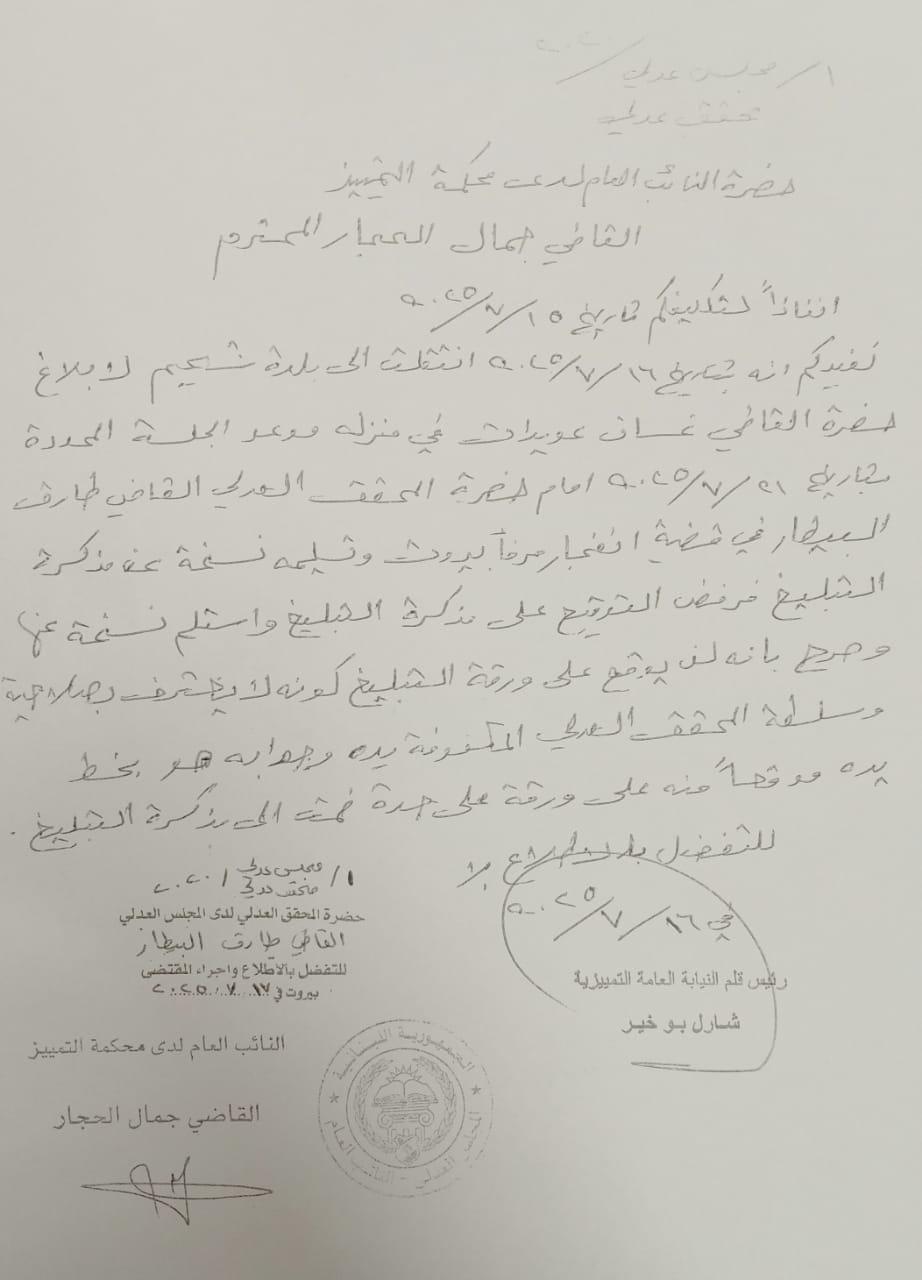 ١/ مجلس عدلي /٢٠٢٠
محقق عدلي
حضرة النائب العام لدى محكمة التمييز
القاضي جمال الحجار المحترم
انفاذاً لتكليفكم تاريخ ٢٠٢٥/٧/١٥
نفيدكم انه بتاريخ ٢٠٢٥/٧/١٦ انتقلت الى بلدة شحيم لابلاغ
حضرة القاضي غسان عويدات في منزله موعد الجلسة المحددة
بتاريخ ٢٠٢٥/٧/٢١ امام حضرة المحقق العدلي القاضي طارق
البيطار في قضية انفجار مرفأ بيروت وتسليمه نسخة عن مذكرة
التبليغ فرفض التوقيع على مذكرة التبليغ واستلم نسخة عنها
وصرح بانه لن يوقع على ورقة التبليغ كونه لا يعترف بصلاحية
وسلطة المحقق العدلي المكفوفة يده وجوابه هو بخط
يده موقعاً منه على ورقة على حدة ضمت الى مذكرة التبليغ.
للتفضل بالاطلاع
في ٢٠٢٥/٧/١٦
رئيس قلم النيابة العامة التمييزية
شارل بو خير
١/ مجلس عدلي / ٢٠٢٠
محقق عدلي
حضرة المحقق العدلي لدى المجلس العدلي
القاضي طارق البيطار
للتفضل بالاطلاع واجراء المقتضى
بيروت في ١٧.٧.٢٠٢٥
النائب العام لدى محكمة التمييز
القاضي جمال الحجار
الجمهورية اللبنانية
المجلس العدلي - النائب العام